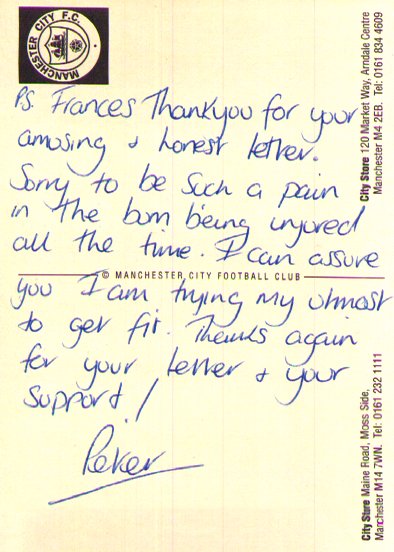 MANCHESTER CITY F.C.
P.S. Frances Thankyou for your
amusing + honest letter.
Sorry to be such a pain
in the bum being injured
all the time. I can assure
© MANCHESTER CITY FOOTBALL CLUB
you I am trying my utmost
to get fit. Thanks again
for your letter + your
support!
Peter
City Store 120 Market Way, Arndale Centre
Manchester M4 2EB. Tel: 0161 834 4609
City Store Maine Road, Moss Side,
Manchester M14 7WN. Tel: 0161 232 1111